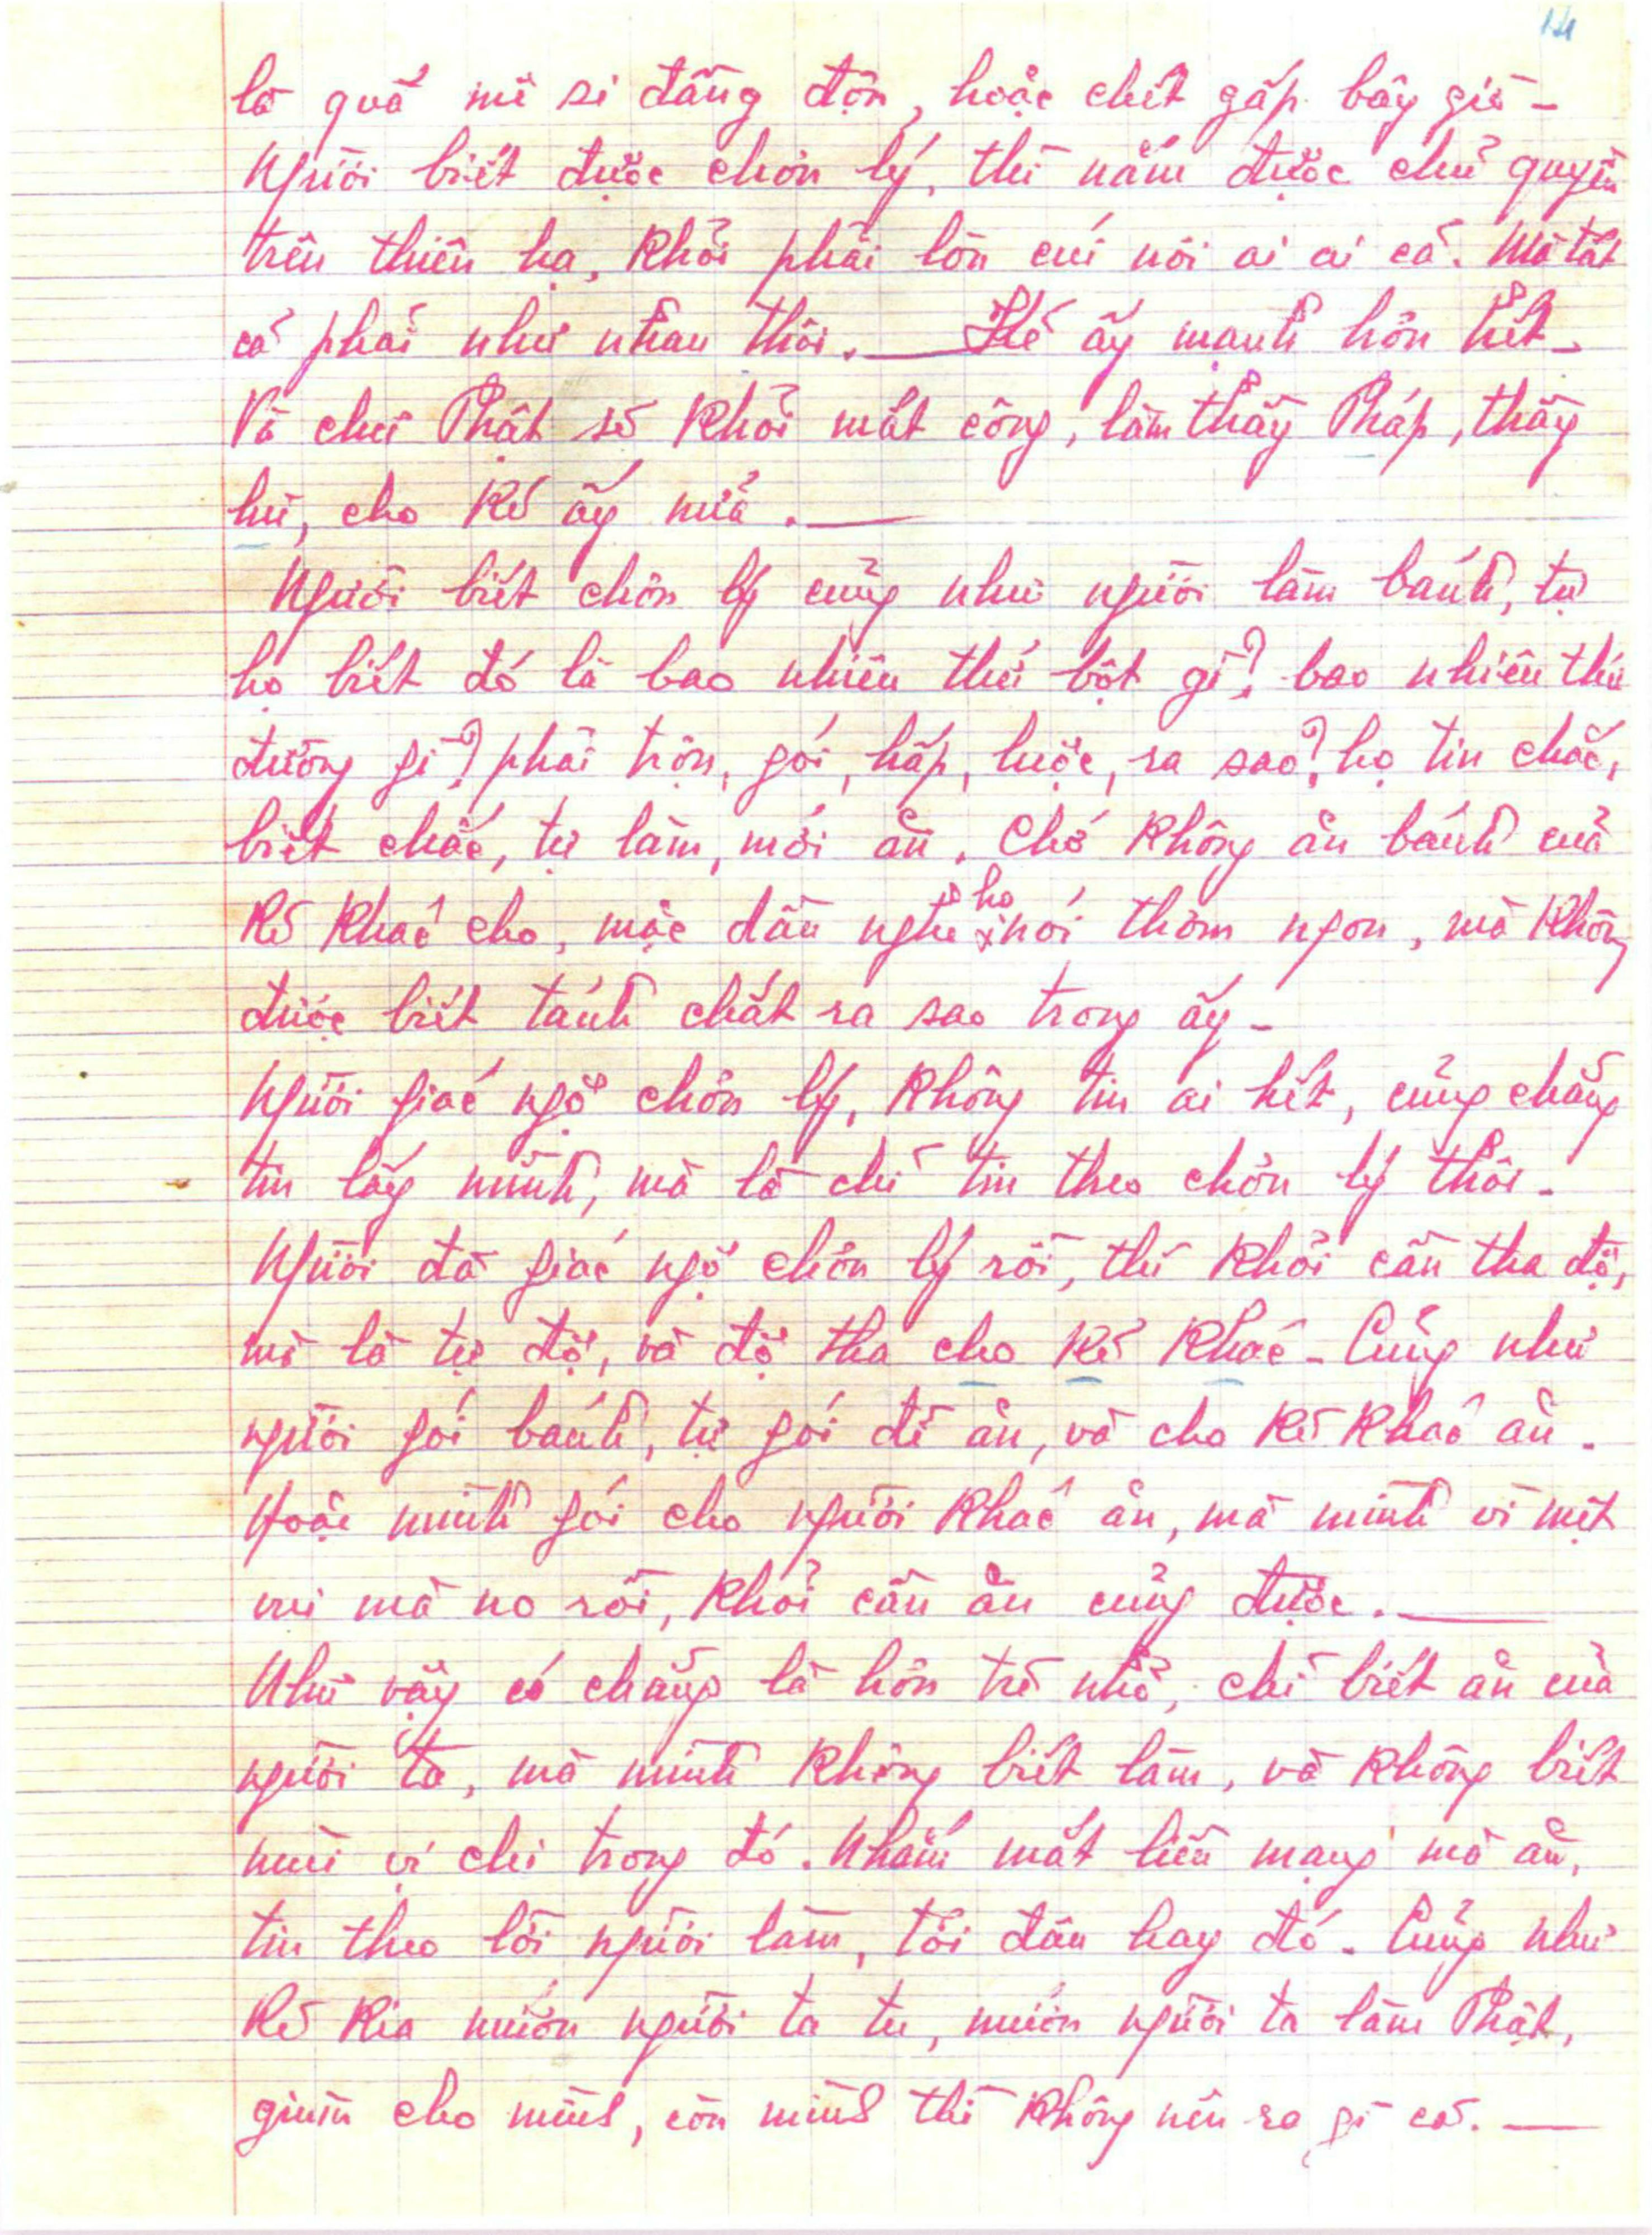 14
là quá mê si đần độn, hoặc chết gấp bây giờ –
Người biết được chơn lý, thì nắm được chủ quyền
trên thiên hạ, khỏi phải lòn cúi nơi ai ai cả. Mà tất
cả phải như nhau thôi. — Kẻ ấy mạnh hơn hết –
Và chư Phật sẽ khỏi mất công, làm thầy Pháp, thầy
hù, cho kẻ ấy nữa. —
Người biết chơn lý cũng như người làm bánh, tự
họ biết đó là bao nhiêu thứ bột gì? bao nhiêu thứ
đường gì? phải trộn, gói, hấp, luộc, ra sao? họ tin chắc,
biết chắc, tự làm, mới ăn. Chớ không ăn bánh của
kẻ khác cho, mặc dầu nghe họ nói thơm ngon, mà không
được biết tánh chất ra sao trong ấy –
Người giác ngộ chơn lý, không tin ai hết, cũng chẳng
tin lấy mình, mà là chỉ tin theo chơn lý thôi –
Người đã giác ngộ chơn lý rồi, thì khỏi cần tha độ,
mà là tự độ, và độ tha cho kẻ khác – Cũng như
người gói bánh, tự gói để ăn, và cho kẻ khác ăn.
Hoặc mình gói cho người khác ăn, mà mình vì mệt
vui mà no rồi, khỏi cần ăn cũng được. —
Như vậy có chẳng là hơn trẻ nhỏ, chỉ biết ăn của
người ta, mà mình không biết làm, và không biết
mùi vị chi trong đó. Nhắm mắt liều mạng mà ăn,
tin theo lời người làm, tới đâu hay đó. Cũng như
kẻ kia mướn người ta tu, mướn người ta làm Phật,
giùm cho mình, còn mình thì không nên ra gì cả. —